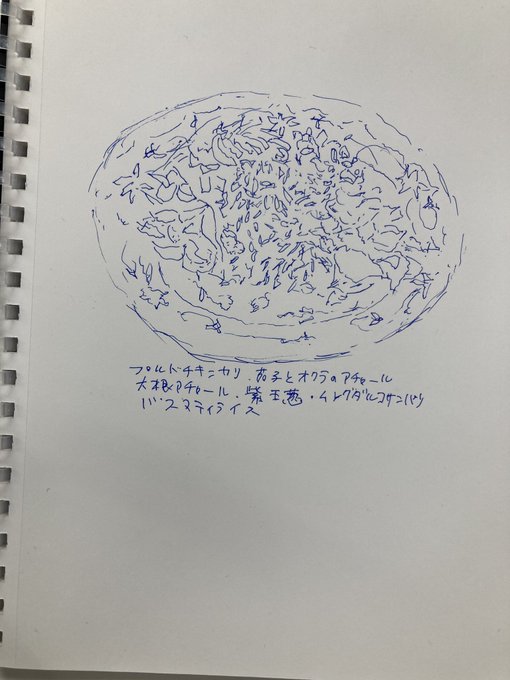 プルドチキンカリ.茄子とオクラのアチャール
大根アチャール.紫玉葱・ムングダルコサンバル
バスマティライス